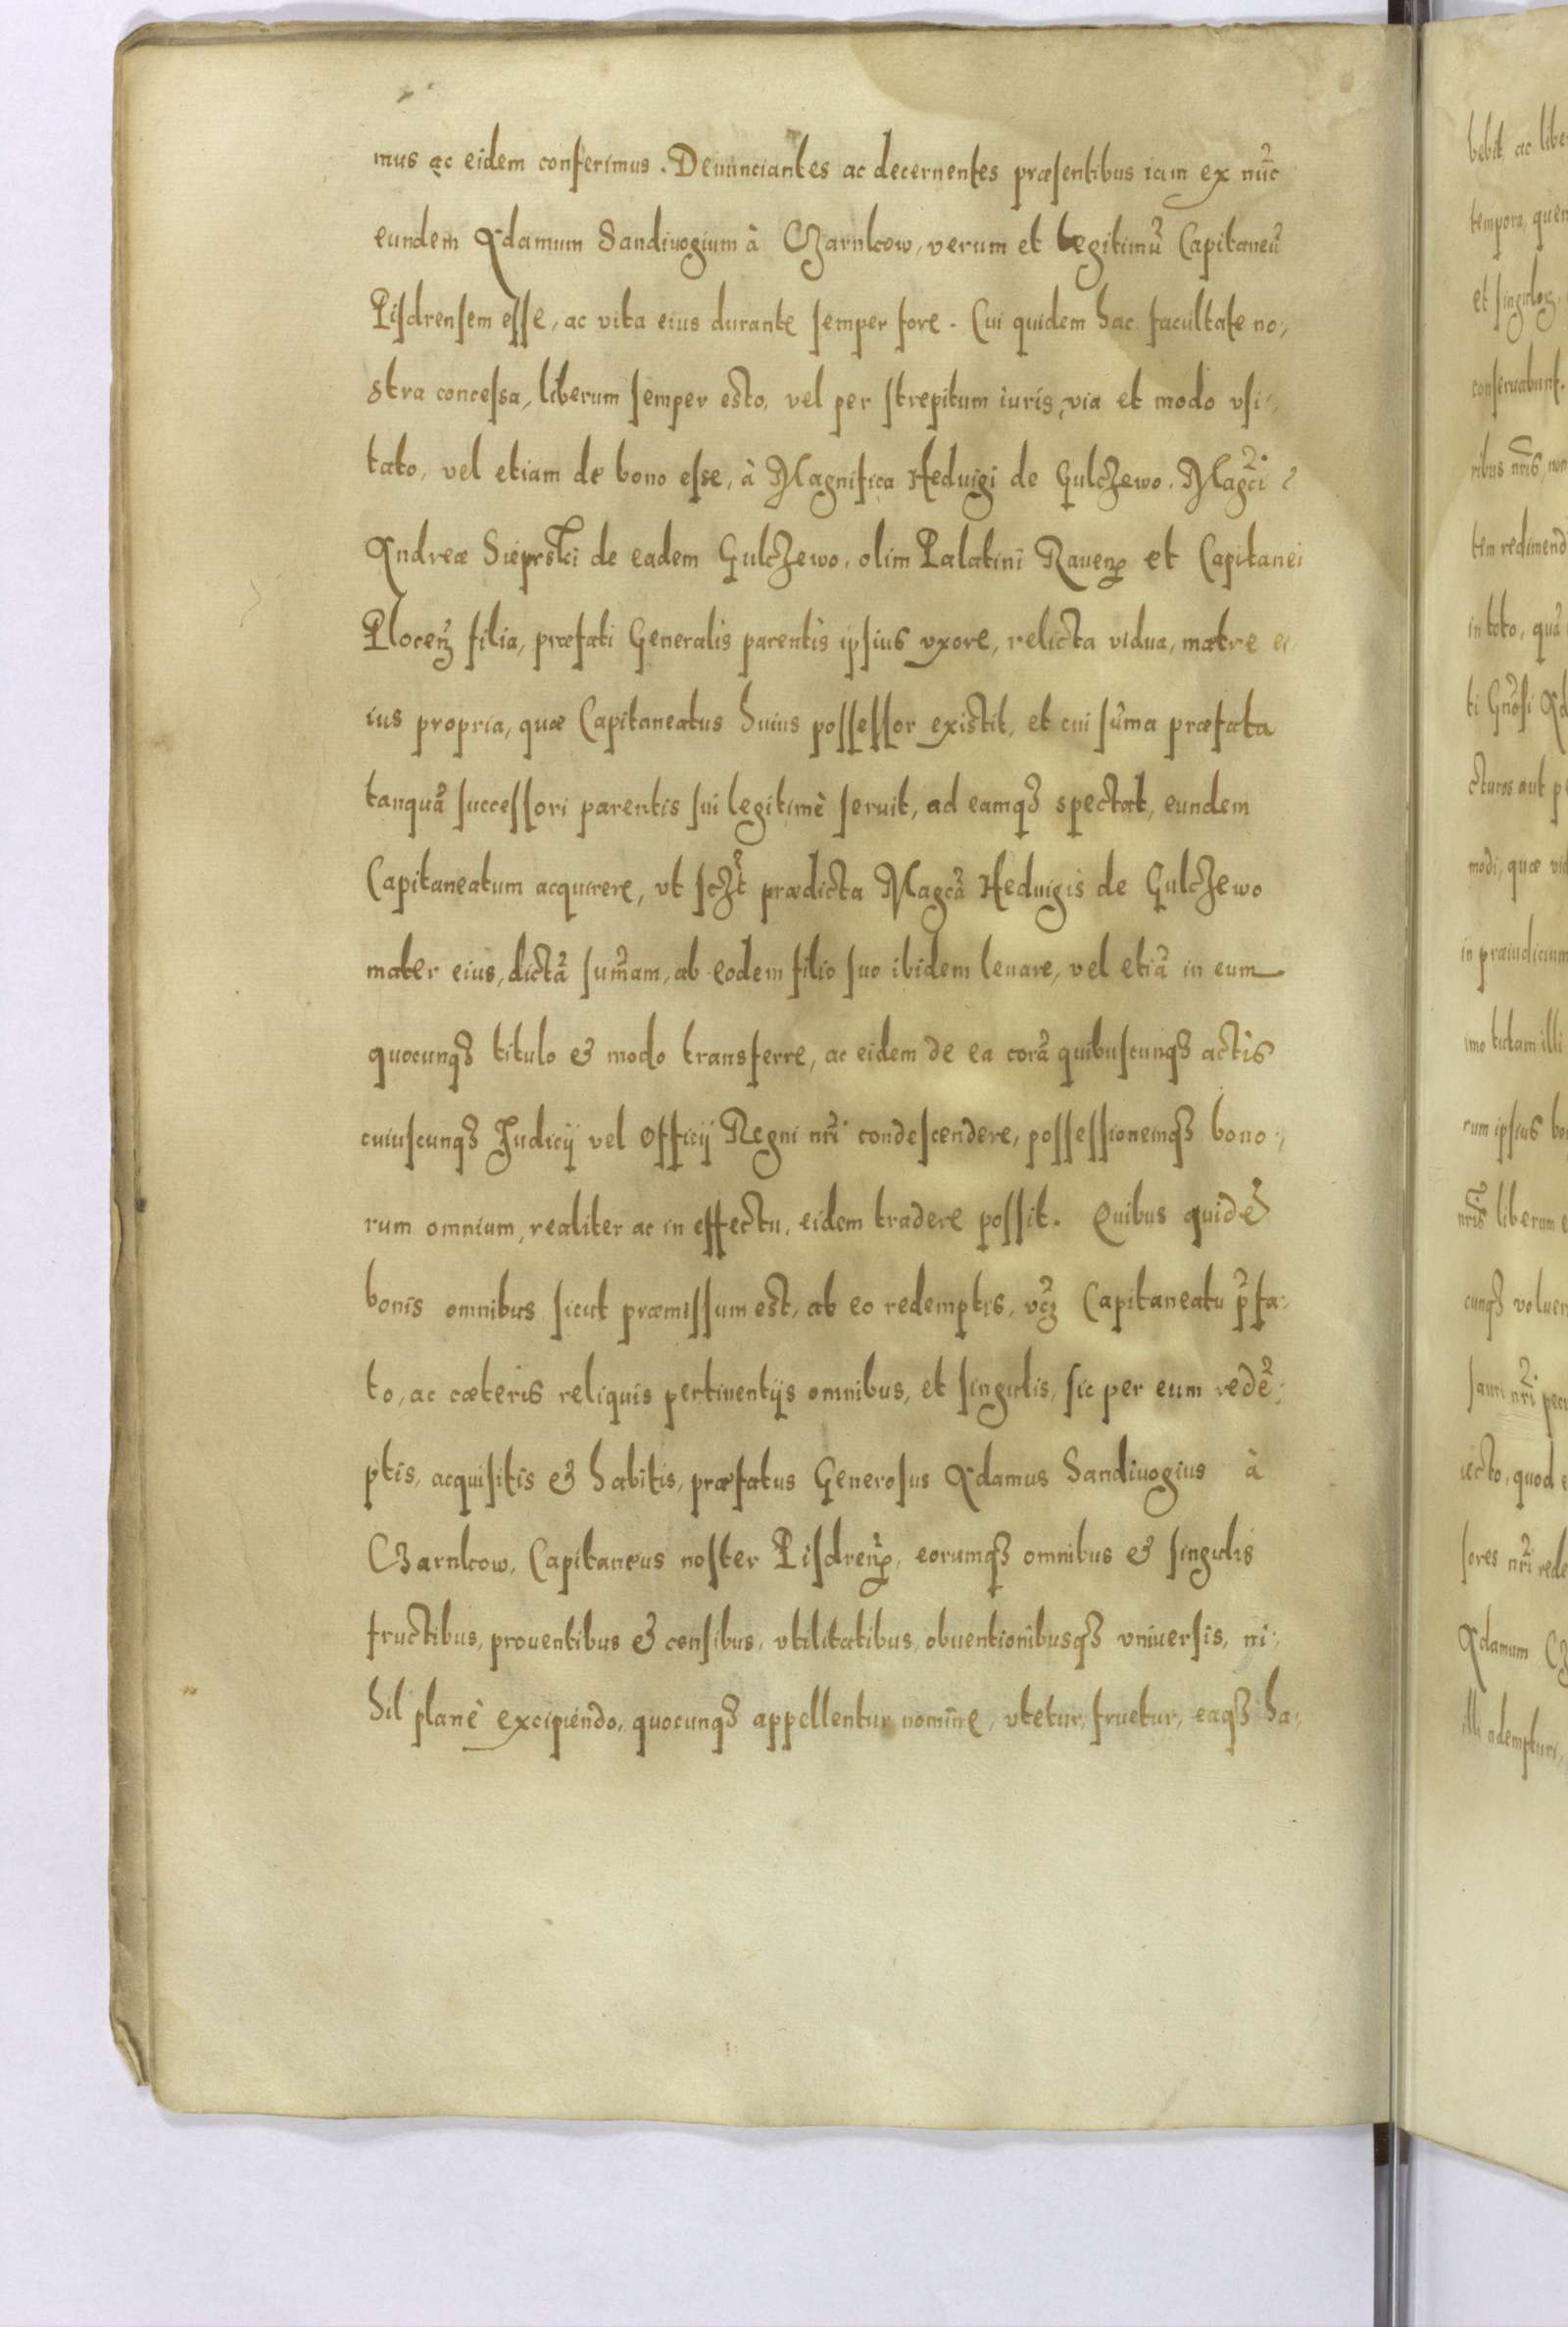 mus ac eidem conferimus. Denunciantes ac decernentes præsentibus iam ex nūc
eundem Adamum Sandiuogium à Czarnkow, verum et legitimū Capitaneū
Pisdrensem esse, ac vita eius durante semper fore. Cui quidem hac facultate no,
stra concessa, liberum semper esto, vel per strepitum iuris, via et modo vsi,
tato, vel etiam de bono esse, à Magnifica Heduigi de Gulczewo, Magci
Andreæ Sieprski de eadem Gulczewo, olim Palatini Rauen et Capitanei
Plocen filia, præfati Generalis parentis ipsius vxore, relicta vidua, matre e
ius propria, quæ Capitaneatus huius possessor existit, et cui sūma præfata
tanquā successori parentis sui legitimè seruit, ad eamq3 spectat, eundem
Capitaneatum acquirere, vt sczt prædicta Magcā Heduigis de Gulczewo
mater eius, dictā sum̄am, ab eodem filio suo ibidem leuare, vel etiā in eum
quocunq3 titulo & modo transferre, ac eidem de ea corā quibuscunq3 actis
cuiuscunq3 Iudicij vel Officij Regni nri condescendere, possessionemq3 bono,
rum omnium, realiter ac in effectu, eidem tradere possit. Quibus quidē
bonis omnibus sicut præmissum est, ab eo redemptis, vcz Capitaneatu p̄fa,
to, ac cæteris reliquis pertinentijs omnibus, et singulis, sic per eum redē,
ptis, acquisitis & habitis, præfatus Generosus Adamus Sandiuogius à
Czarnkow, Capitaneus noster Pisdren, eorumq3 omnibus & singulis
fructibus, prouentibus & censibus, vtilitatibus, obuentionibusq3 vniuersis, ni,
hil planè excipiendo, quocunq3 appellentur nomine, vtetur, fruetur, eaq3 ha,